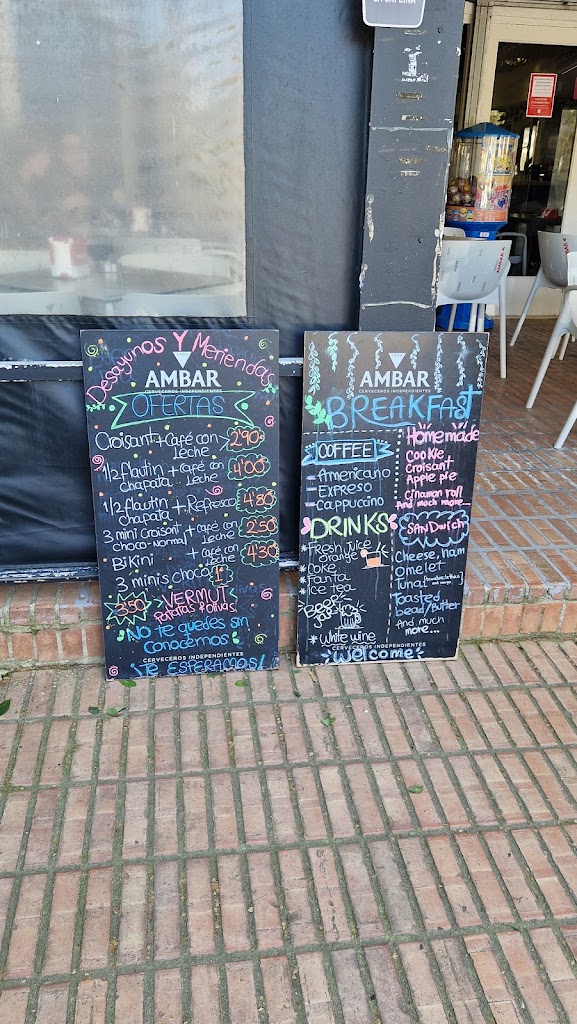 Desayunos Y Meriendas
AMBAR
CERVECEROS INDEPENDIENTES
OFERTAS
Croisant + café con leche 2'90
1/2 flautin chapata + café con leche 4'00
1/2 flautin chapata + Refresco 4'80
3 mini croisant choco-normal + café con leche 2'50
BiKini + café con leche 4'30
3 minis choco 1'
3'50 > VERMUT
Patatas y olivas
NO te quedes sin
conocernos
CERVECEROS INDEPENDIENTES
¡TE ESPERAMOS!
AMBAR
CERVECEROS INDEPENDIENTES
BREAKFAST
COFFEE
- Americano
- EXPRESO
- Cappuccino
DRINKS
* Fresh juice orange
* Coke
* Fanta
* Ice tea
* white wine
Homemade
COOKIE
Croisant
Apple pie
Cinamon roll
And much more...
SANDwich
Cheese, ham
omelet
Tuna
Toasted
bead/butter
And much
more...
CERVECEROS INDEPENDIENTES
welcome